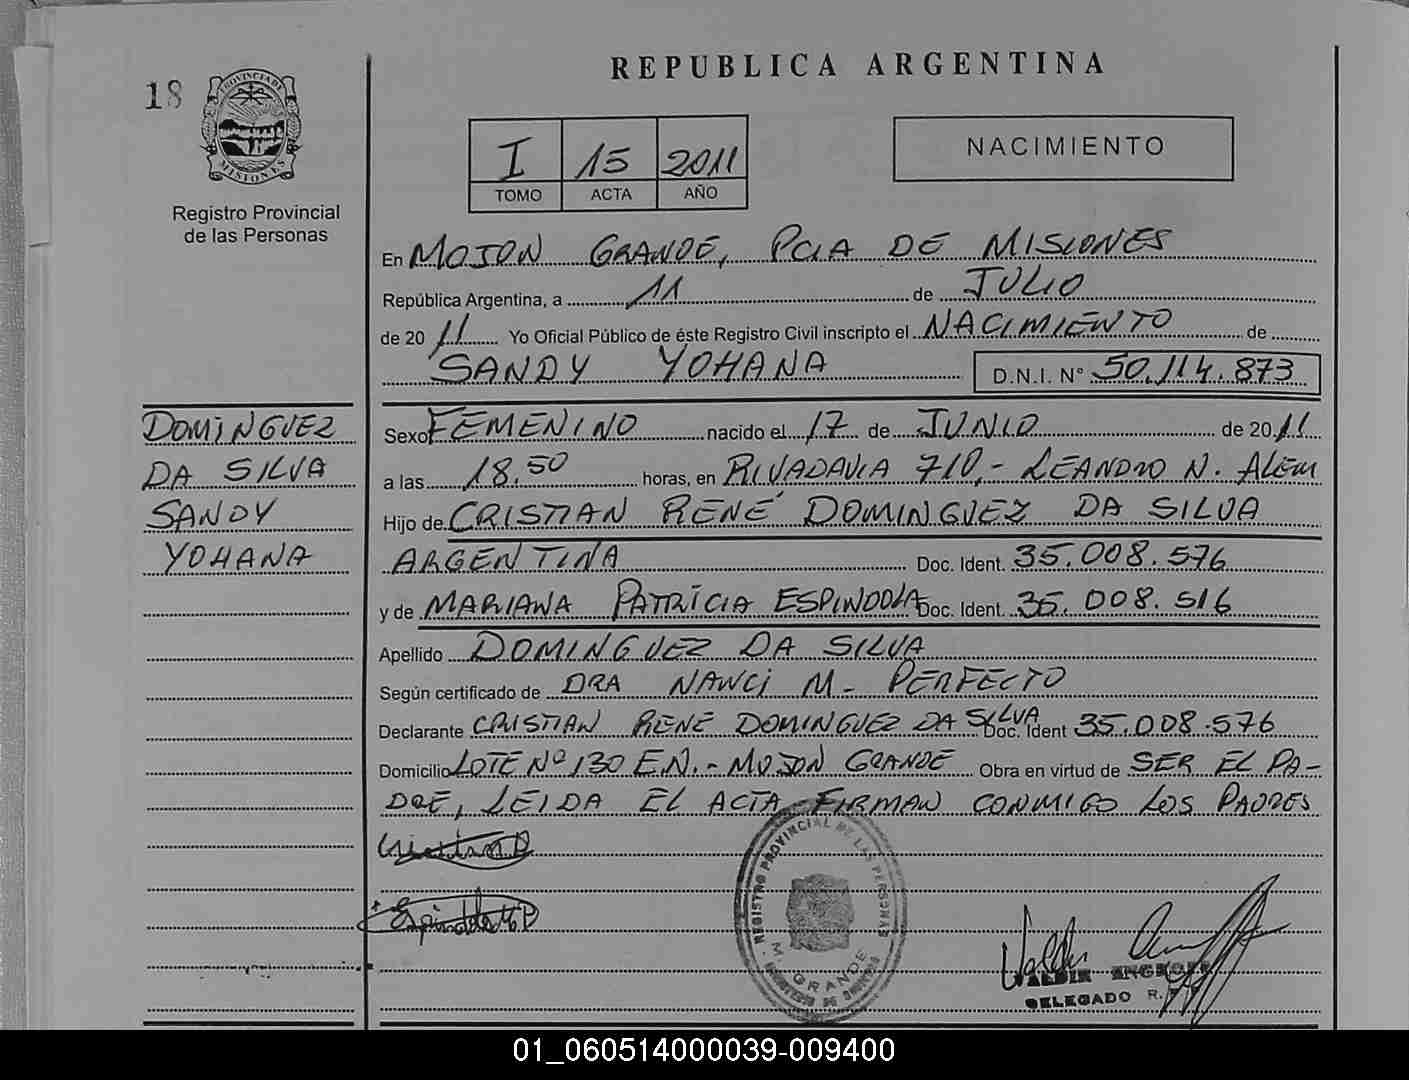 REPUBLICA ARGENTINA
18
PROVINCIA DE
MISIONES
Registro Provincial
de las Personas
I 15 2011
TOMO ACTA AÑO
NACIMIENTO
En MOJON GRANDE, PCIA DE MISIONES
República Argentina, a 11 de JULIO
de 2011 Yo Oficial Público de éste Registro Civil inscripto el NACIMIENTO de
SANDY YOHANA D.N.I. N° 50.114.873
DOMINGUEZ
DA SILVA
SANDY
YOHANA
Sexo FEMENINO nacido el 17 de JUNIO de 2011
a las 18.50 horas, en RIVADAVIA 710,- LEANDRO N. ALEM
Hijo de CRISTIAN RENÉ DOMINGUEZ DA SILVA
ARGENTINA Doc. Ident. 35.008.576
y de MARIANA PATRICIA ESPINDOLA Doc. Ident. 35.008.516
Apellido DOMINGUEZ DA SILVA
Según certificado de DRA NANCI M- PERFECTO
Declarante CRISTIAN RENÉ DOMINGUEZ DA SILVA Doc. Ident 35.008.576
Domicilio LOTE Nº 130 E.N.- MOJON GRANDE Obra en virtud de SER EL PA-
DRE, LEIDA EL ACTA FIRMAN CONMIGO LOS PADRES
Cristian D
Espindola M P
REGISTRO PROVINCIAL DE LAS PERSONAS
M. GRANDE
VALDIR
DELEGADO R.
01_060514000039-009400